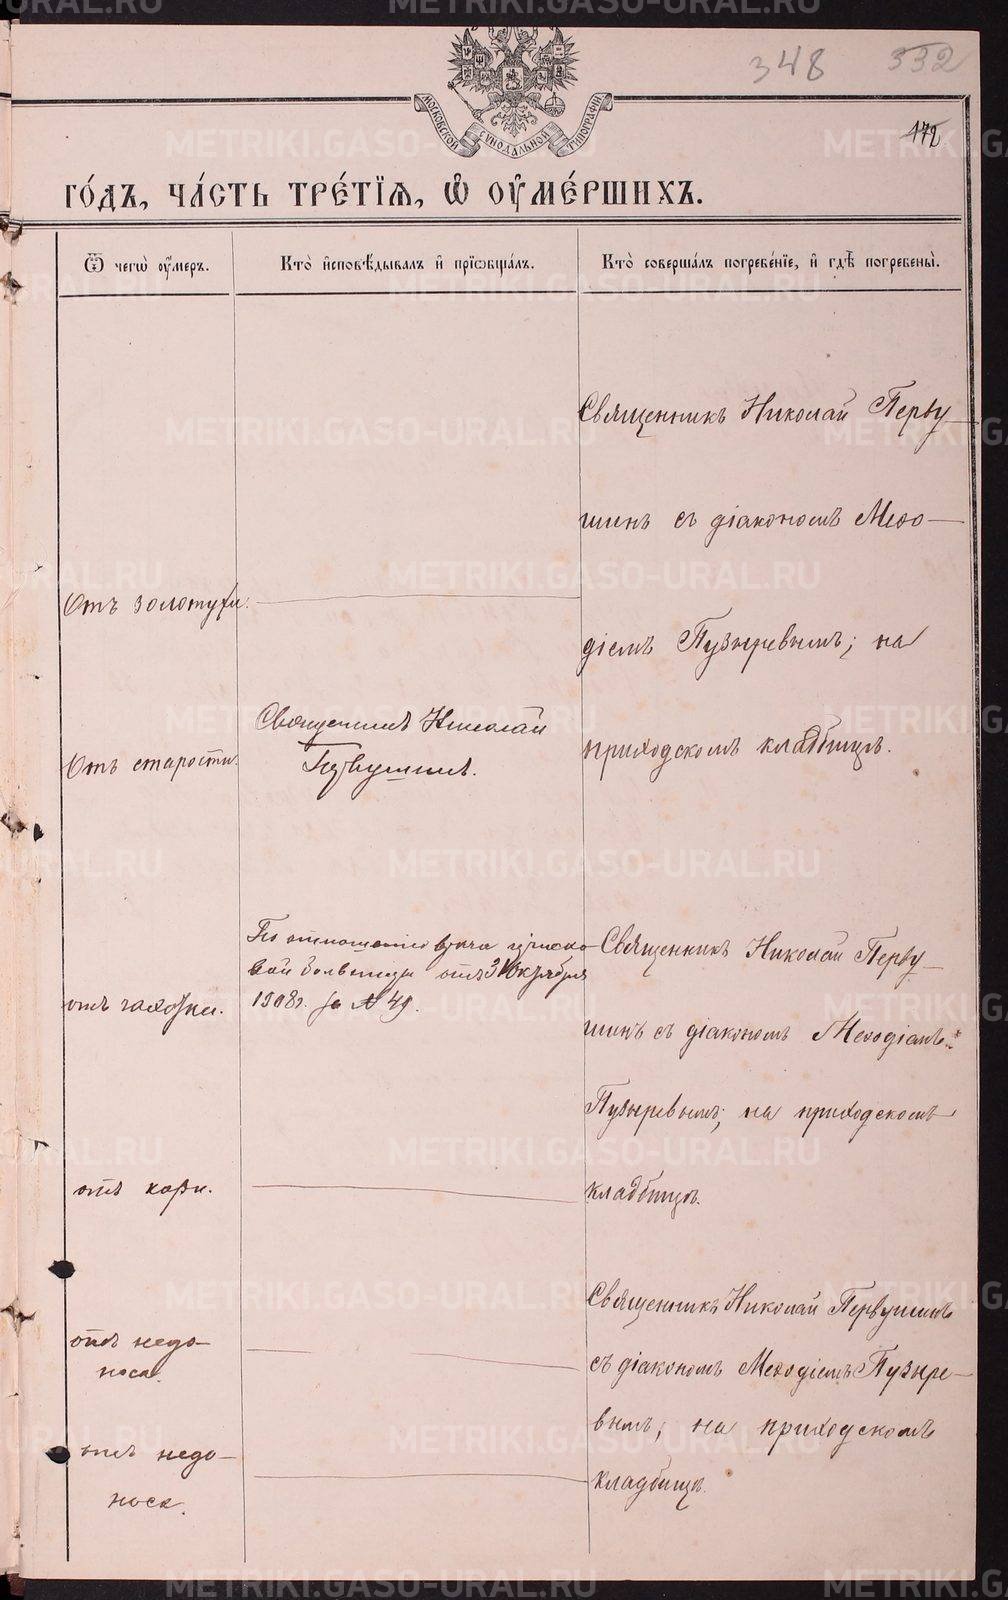 348 332
172
МОСКОВСКОЙ СѴНОДАЛЬНОЙ ТИПОГРАФІИ
ГО́ДЪ, ЧА́СТЬ ТРЕ́ТІѦ, Ѽ ОУ҆МЕ́РШИХЪ.
Ѿ чегѡ̀ оу҆́меръ.
Кто̀ и҆сповѣ́дывалъ и҆ прїѡбща́лъ.
Кто̀ соверша́лъ погребе́нїе, и҆ гдѣ̀ погребены̀.
Священникъ Николай Перву
шинъ съ діакономъ Меѳо—
діемъ Пузыревымъ; на
приходскомъ кладбищѣ.
Отъ золотухи.
Отъ старости.
Священникъ Николай
Первушинъ.
отъ чахотки.
По отношенію врача
вой больницы отъ 31 Октября
1908г. за № 49.
Священникъ Николай Перву—
шинъ съ діакономъ Меѳодіемъ
Пузыревымъ; на приходскомъ
кладбищѣ.
отъ кори.
отъ недо—
носа.
отъ недо—
носа.
Священникъ Николай Первушинъ
съ діакономъ Меѳодіемъ Пузыре—
вымъ; на приходскомъ
кладбищѣ.
METRIKI.GASO-URAL.RU